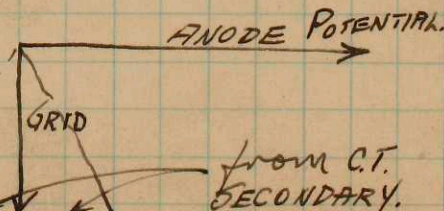 ANODE POTENTIAL.
GRID
from C.T.
SECONDARY.